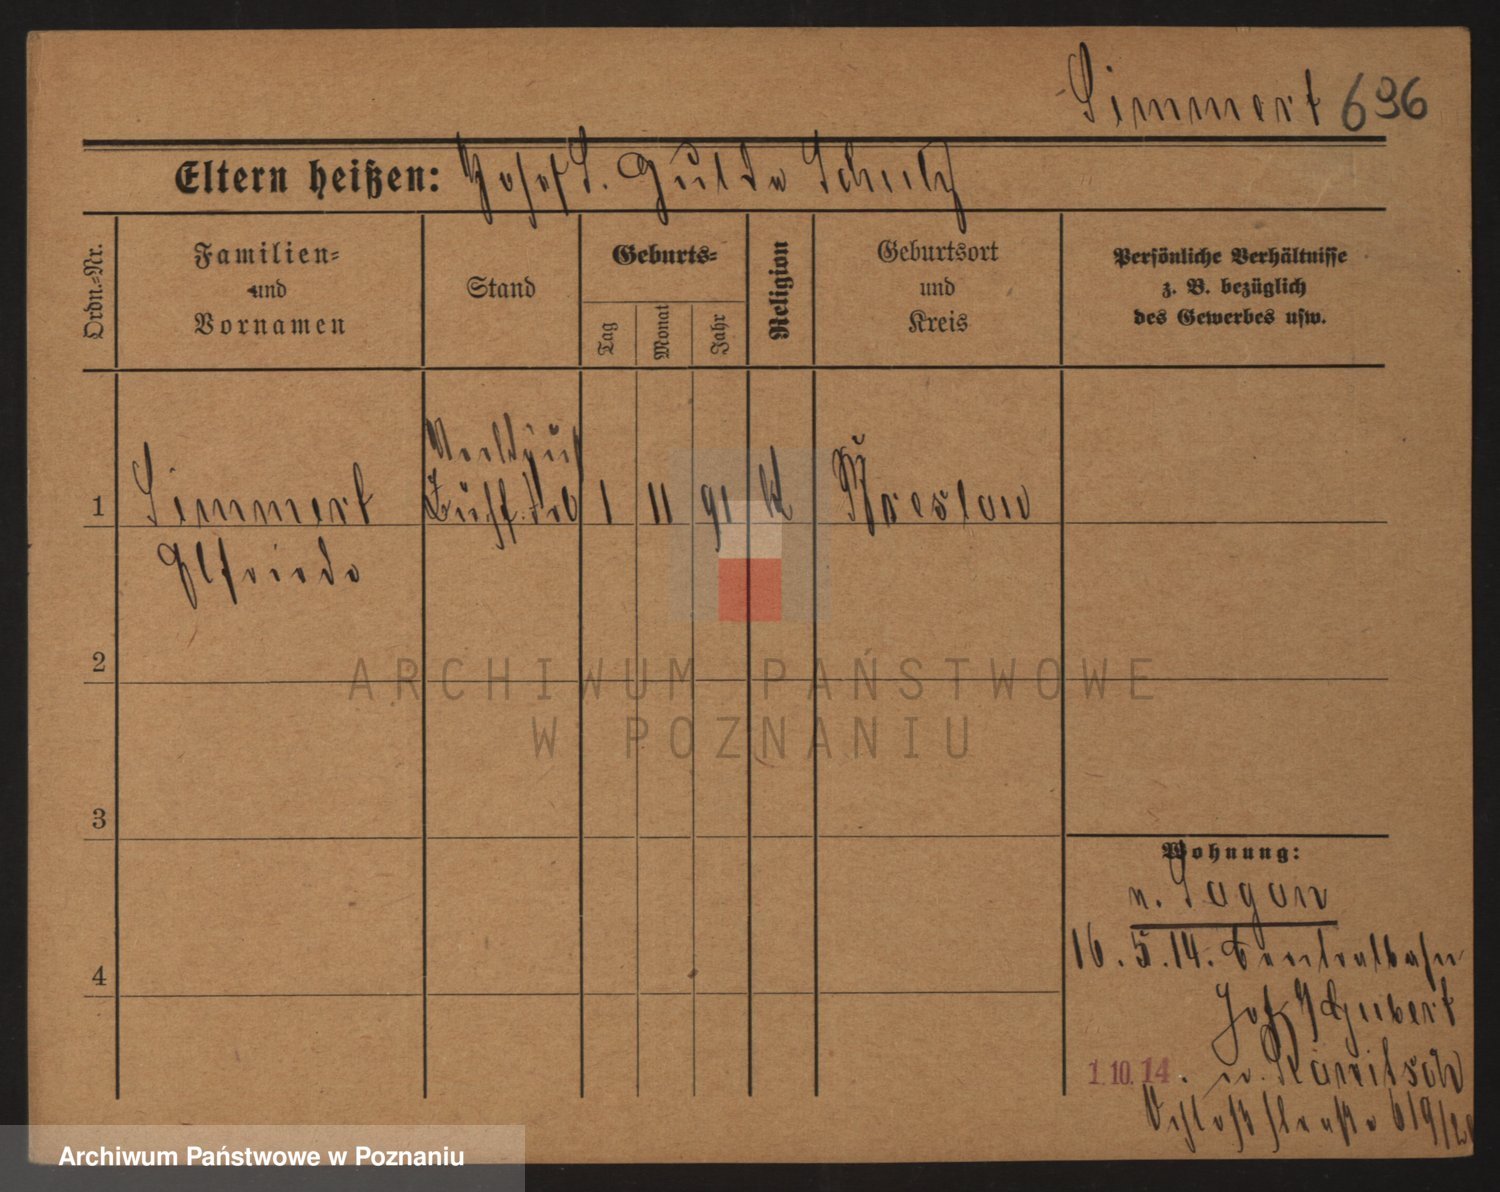 Simmert 696
Eltern heißen: Josef S. Hulda Schulz
Ordn.-Nr.
Familien-
und
Vornamen
Stand
Geburts-
Tag
Monat
Jahr
Religion
Geburtsort
und
Kreis
Persönliche Verhältnisse
z. B. bezüglich
des Gewerbes usw.
1
Simmert
1 11 91 K Breslau
Elfriede
2
ARCHIWUM PAŃSTWOWE
W POZNANIU
3
Wohnung:
n. Sagan
4
16.5.14. Centralbahn
Schubert
1.10.14.
Schloßstraße
Archiwum Państwowe w Poznaniu